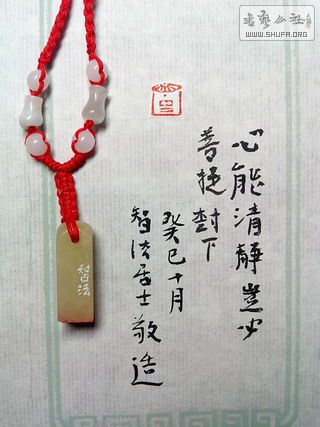 書藝公社
WWW.SHUFA.ORG
心能清靜豈必
菩提樹下
癸巳十月
智法居士敬造
智法